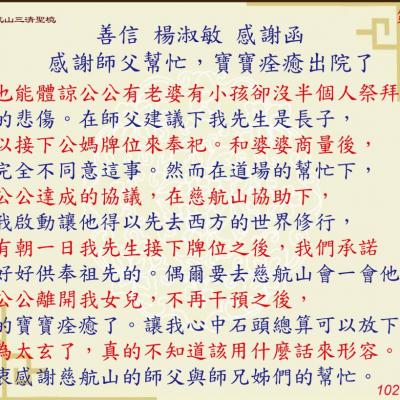 航山三清聖境
善信 楊淑敏 感謝函
感謝師父幫忙，寶寶痊癒出院了
也能體諒公公有老婆有小孩卻沒半個人祭拜
的悲傷。在師父建議下我先生是長子，
以接下公媽牌位來奉祀。和婆婆商量後，
完全不同意這事。然而在道場的幫忙下，
公公達成的協議，在慈航山協助下，
我啟動讓他得以先去西方的世界修行，
有朝一日我先生接下牌位之後，我們承諾
好好供奉祖先的。偶爾要去慈航山會一會他
公公離開我女兒，不再干預之後，
的寶寶痊癒了。讓我心中石頭總算可以放下
為太玄了，真的不知道該用什麼話來形容。
衷感謝慈航山的師父與師兄姊們的幫忙。
102